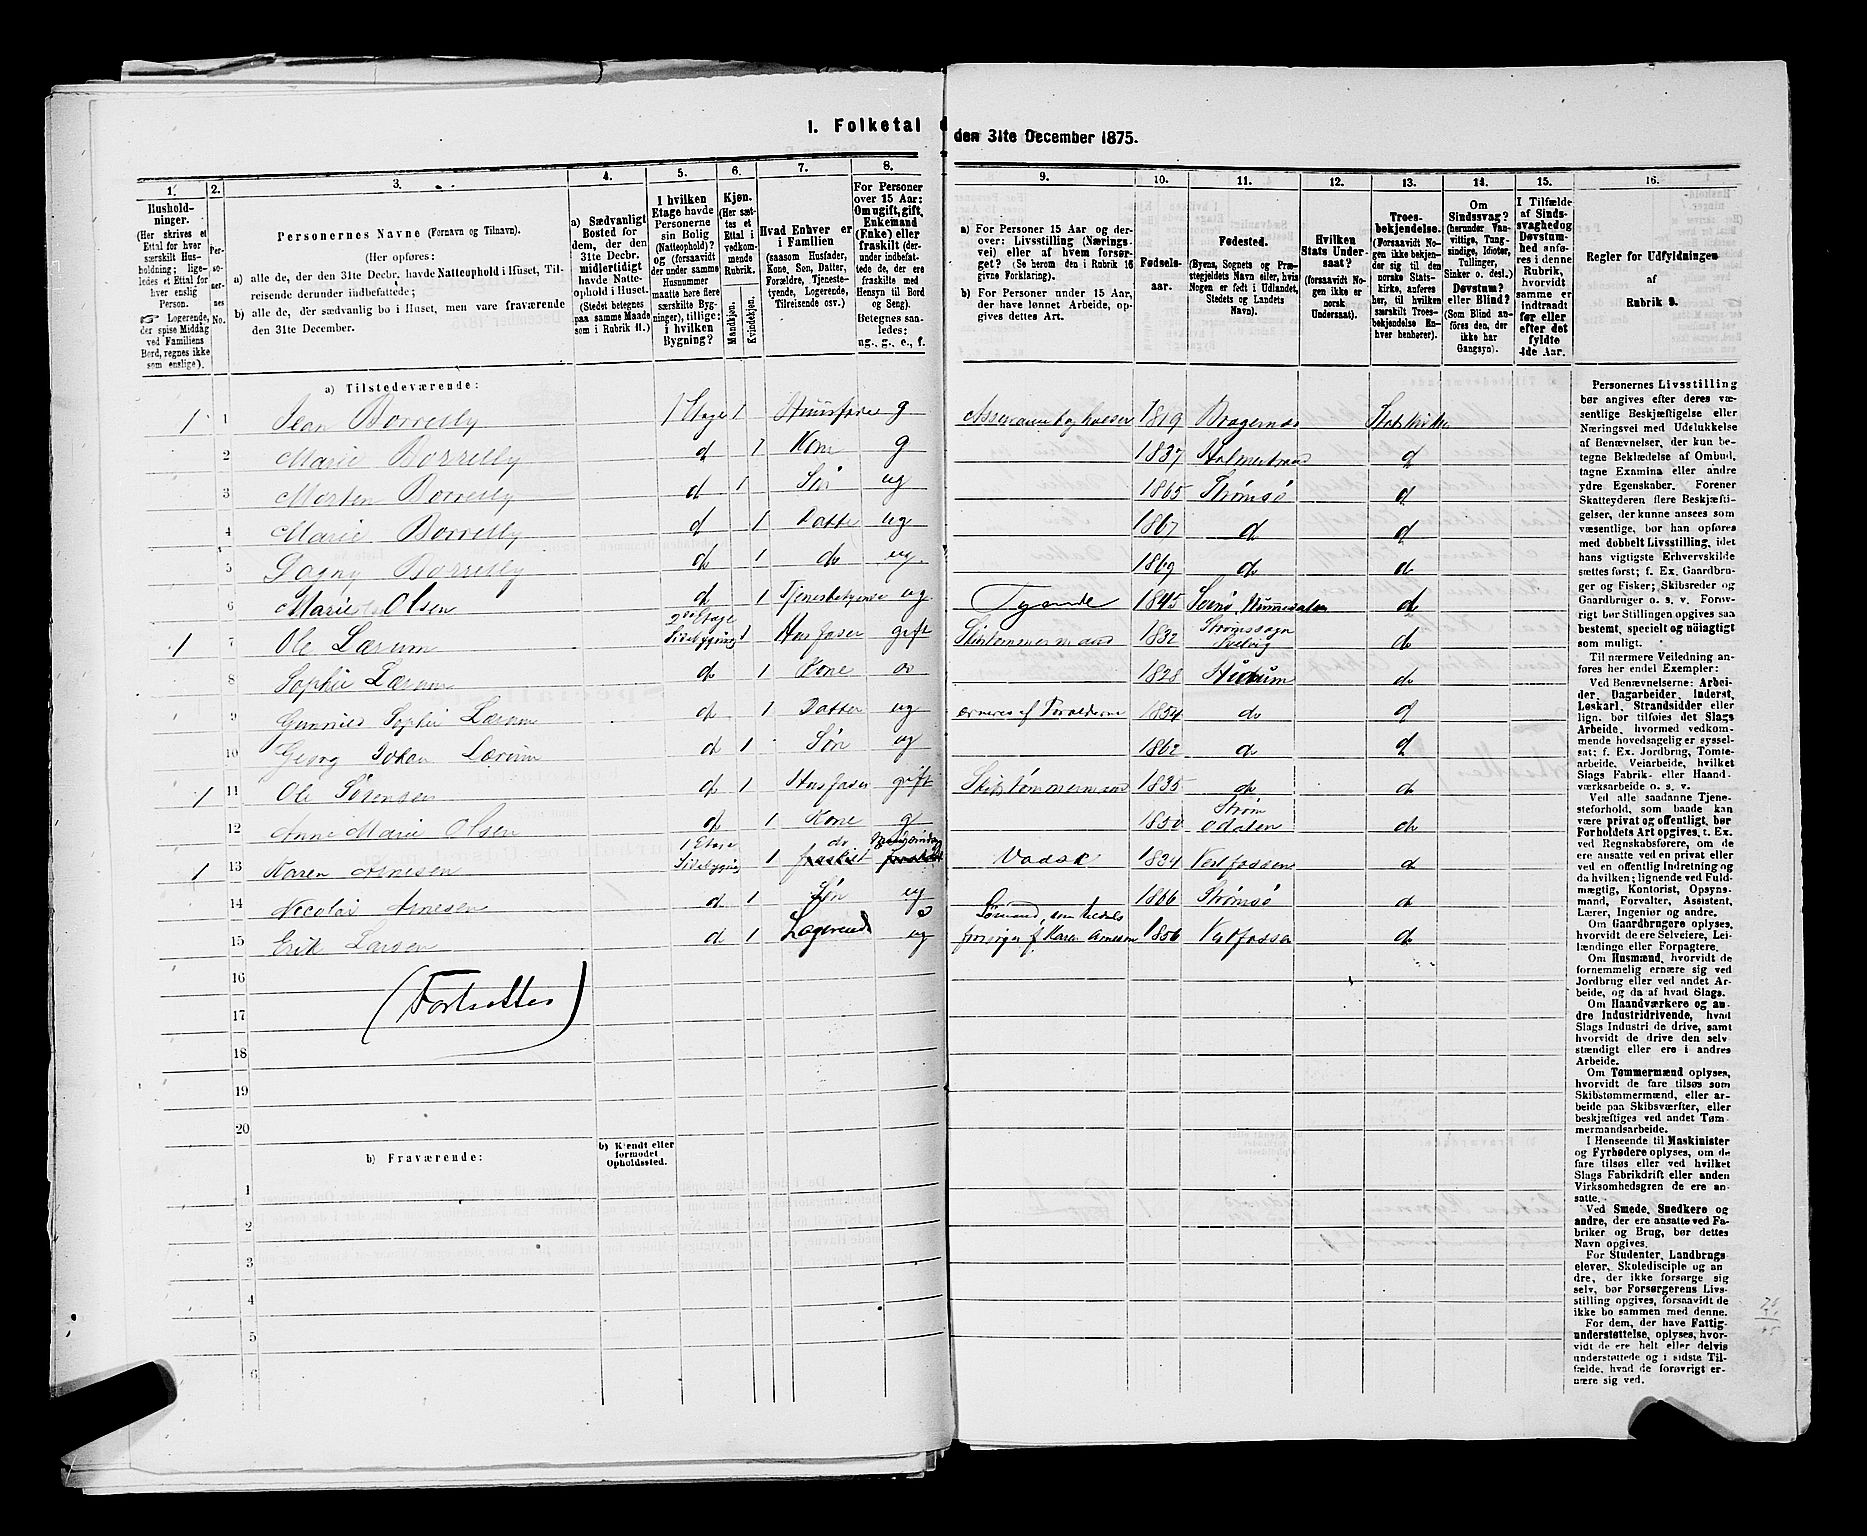 1. Folketal
den 31te December 1875.
1. 2. 3. 4. 5. 6. 7. 8. 9. 10. 11. 12. 13. 14. 15. 16.
Husholdninger.
(Her skrives et
Ettal for hver
særskilt Husholdning;
ligeledes
et Ettal for
hver enslig
Person.
☞ Logerende,
der spise Middag
ved Familiens
Bord, regnes ikke
som enslige).
Personernes
No.
Personernes Navne (Fornavn og Tilnavn).
(Her opføres:
a) alle de, der den 31te Decbr. havde Natteophold i Huset, Tilreisende
derunder indbefattede;
b) alle de, der sædvanlig bo i Huset, men vare fraværende
den 31te December.
a) Sædvanligt
Bosted for
dem, der den
31te Decbr.
midlertidigt
havde Natteophold
i Huset.
(Stedet betegnes
paa samme Maade
som i Rubrik 11.)
I hvilken
Etage havde
Personerne
sin Bolig
(Natteophold)?
og (forsaavidt
der under samme
Husnummer
maatte høre flere
særskilte Bygninger),
tillige:
i hvilken
Bygning?
Kjøn.
(Her sættes
et
Ettal i
vedkommende
Rubrik.
Mandkjøn.
Kvindekjøn.
Hvad Enhver er
i Familien
(saasom Husfader,
Kone, Søn, Datter,
Forældre, Tjenestetyende,
Logerende,
Tilreisende osv.)
For Personer
over 15 Aar:
Om ugift, gift,
Enkemand
(Enke) eller
fraskilt (derunder
indbefattede
de, der ere
fraskilte med
Hensyn til Bord
og Seng).
Betegnes saaledes:
ug., g., e., f.
a) For Personer 15 Aar og derover:
Livsstilling (Næringsvei)
eller af hvem forsørget?
(Se herom den i Rubrik 16
givne Forklaring).
b) For Personer under 15 Aar,
der have lønnet Arbeide, opgives
dettes Art.
Fødselsaar.
Fødested.
(Byens, Sognets og Præstegjeldets
Navn eller, hvis
Nogen er født i Udlandet,
Stedets og Landets
Navn).
Hvilken
Stats Undersaat?
(forsaavidt Nogen
ikke er
norsk
Undersaat).
Troesbekjendelse.
(Forsaavidt Nogen
ikke bekjender
sig til den
norske Statskirke,
anføres
her, til hvilken
særskilt Troesbekjendelse
Enhver
henhører).
Om
Sindssvag?
(herunder Vanvittige,
Tungsindige,
Idioter,
Tullinger,
Sinker o. desl.)
Døvstum?
eller Blind?
(Som Blind anføres
den, der
ikke har
Gangsyn).
I Tilfælde
af Sindssvaghed
og
Døvstumhed
anføres
i denne
Rubrik,
hvorvidt
samme er
indtraadt
før eller
efter det
fyldte
4de Aar.
Regler for Udfyldningen
af
Rubrik 9.
a) Tilstedeværende:
1 1 Jean Borrelly 1 Etage 1 Huusfader g 1819 Bragernæs Statskirke
2 Marie Borrelly d 1 Kone g 1837 Holmestrand d
3 Morten Borrelly d 1 Søn ug 1865 Strømsø d
4 Marie Borrelly d 1 Datter ug 1867 d d
5 Dagny Borrelly d 1 do ug. 1869 do d
6 Marie Olsen d 1 ug. Tyende 1845 d
7 Ole Lærum 2den Etage Sidebygning 1 Husfader gift 1832 Strømssogn Svelvig d
8 Sophie Lærum d 1 Kone 1828 Hurum d
9 Gunnild Sophie Lærum d 1 Datter ug ærneres af Foreldrerne 1854 do d
10 Georg Johan Lærum d 1 Søn ug 1862 d d
1 11 Ole Sørensen d 1 Husfader gift Skibstømmermand 1835 d d
12 Anne Marie Olsen d 1 Kone g 1850 Strøm Odalen d
1 13 Karen Arnesen 1 Etage Sidebygning 1 fraskilt 1834 Vestfossen d
14 Nicolai Arnesen d 1 Søn ug 1866 Strømsø d
15 Erik Larsen d 1 Logerende ug Sømand, som forsørges af Karen Arnesen 1856 Vestfossen d
16
(Fortsættes)
17
18
19
20
b) Fraværende:
b) Kjendt eller
formodet
Opholdssted.
1
2
3
4
5
6
Personernes Livsstilling
bør angives efter deres væsentlige
Beskjæftigelse eller
Næringsvei med Udelukkelse
af Benævnelser, der kun betegne
Beklædelse af Ombud,
tagne Examina eller andre
ydre Egenskaber. Forener
Skatteyderen flere Beskjæftigelser,
der kunne ansees som
væsentlige, bør han opføres
med dobbelt Livsstilling, idet
hans vigtigste Erhvervskilde
sættes først; f. Ex. Gaardbruger
og Fisker; Skibsreder og
Gaardbruger o. s. v. Forøvrigt
bør Stillingen opgives saa
bestemt, specielt og nøiagtigt
som muligt.
Til nærmere Veiledning anføres
her endel Exempler:
Ved Benævnelserne: Arbeider,
Dagarbeider, Inderst,
Løskarl, Strandsidder eller
lign. bør tilføies det Slags
Arbeide, hvormed vedkommende
hovedsagelig er sysselsat;
f. Ex. Jordbrug, Tomtearbeide,
Veiarbeide, hvilket
Slags Fabrik- eller Haandværksarbeide
o. s. v.
Ved alle saadanne Tjenesteforhold,
som baade kan
være privat og offentlig, bør
Forholdets Art opgives, t. Ex.
ved Regnskabsførere, om de
ere ansatte ved en privat eller
ved en offentlig Indretning og
da hvilken; lignende ved Fuldmægtig,
Kontorist, Opsynsmand,
Forvalter, Assistent,
Lærer, Ingeniør og andre.
Om Gaardbrugere oplyses,
hvorvidt de ere Selveiere, Leilændinge
eller Forpagtere.
Om Husmænd, hvorvidt de
fornemmelig ernære sig ved
Jordbrug eller ved andet Arbeide,
og da af hvad Slags.
Om Haandværkere og andre
Industridrivende, hvad
Slags Industri de drive, samt
hvorvidt de drive den selvstændigt
eller ere i andres
Arbeide.
Om Tømmermænd oplyses,
hvorvidt de fare tilsøs som
Skibstømmermænd, eller arbeide
paa Skibsværfter, eller
beskjæftiges ved andet Tømmermandsarbeide.
I Henseende til Maskinister
og Fyrbødere oplyses, om de
fare tilsøs eller ved hvilket
Slags Fabrikdrift eller anden
Virksomhedsgren de ere ansatte.
Ved Smede, Snedkere og
andre, der ere ansatte ved Fabriker
og Brug, bør dettes
Navn opgives.
For Studenter, Landbrugselever,
Skoledisciple og andre,
der ikke forsørge sig
selv, bør Forsørgerens Livsstilling
opgives, forsaavidt de
ikke bo sammen med denne.
For dem, der have Fattigunderstøttelse,
oplyses, hvorvidt
de ere helt eller delvis
understøttede og i sidste Tilfælde,
hvad de forøvrigt ernære
sig ved.